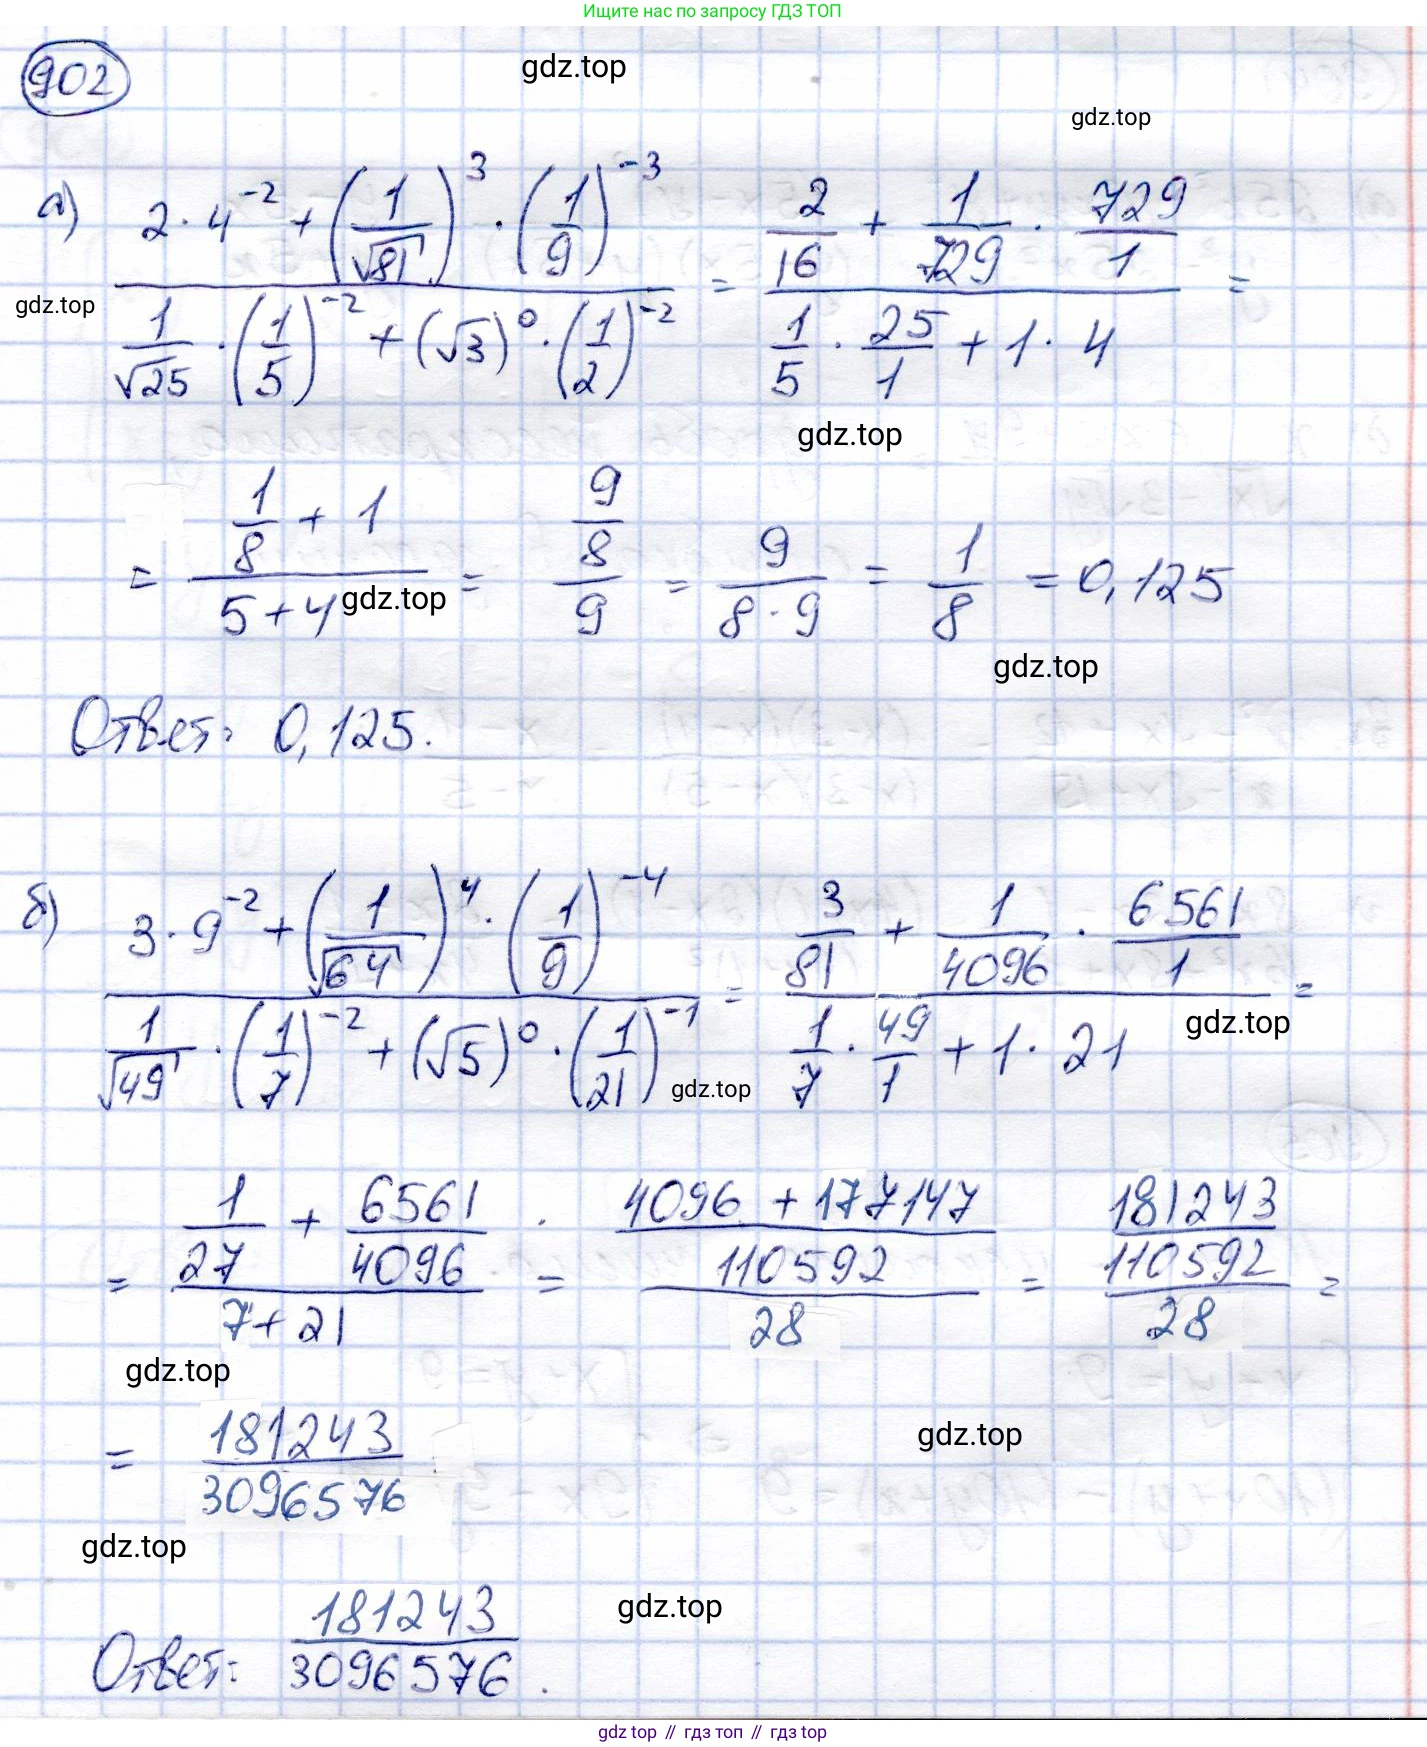 Ищите нас по запросу ГДЗ ТОП
902
gdz.top
gdz.top
а) (2 · 4^-2 + (1/√81)^3 · (1/9)^-3) / (1/√25 · (1/5)^-2 + (√3)^0 · (1/2)^-2) = (2/16 + 1/729 · 729/1) / (1/5 · 25/1 + 1 · 4) =
gdz.top
gdz.top
= (1/8 + 1) / (5 + 4) = (9/8) / 9 = 9 / (8 · 9) = 1/8 = 0,125
gdz.top
gdz.top
Ответ: 0,125.
б) (3 · 9^-2 + (1/√64)^4 · (1/9)^-4) / (1/√49 · (1/7)^-2 + (√5)^0 · (1/21)^-1) = (3/81 + 1/4096 · 6561/1) / (1/7 · 49/1 + 1 · 21) =
gdz.top
gdz.top
= (1/27 + 6561/4096) / (7 + 21) = ((4096 + 177147) / 110592) / 28 = (181243/110592) / 28 =
gdz.top
= 181243/3096576
gdz.top
gdz.top
Ответ: 181243/3096576.
gdz.top
gdz.top // гдз топ // гдз top